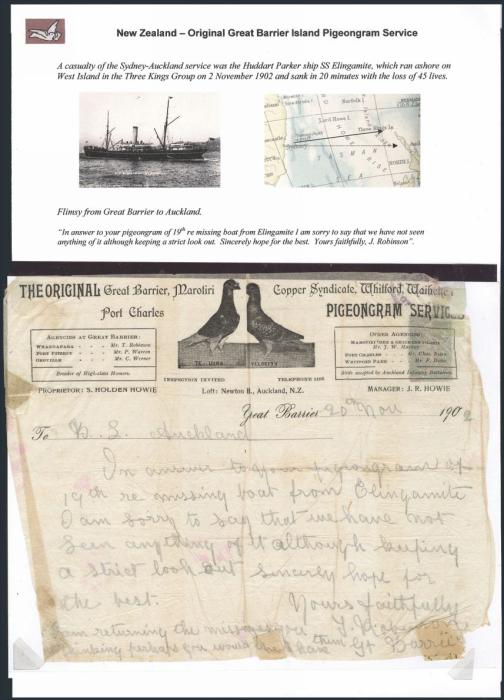 New Zealand – Original Great Barrier Island Pigeongram Service
A casualty of the Sydney-Auckland service was the Huddart Parker ship SS Elingamite, which ran ashore on
West Island in the Three Kings Group on 2 November 1902 and sank in 20 minutes with the loss of 45 lives.
Lord Howe I.
Norfolk I.
Three Kings Is
TASMAN
SEA
Flimsy from Great Barrier to Auckland.
"In answer to your pigeongram of 19th re missing boat from Elingamite I am sorry to say that we have not seen
anything of it although keeping a strict look out. Sincerely hope for the best. Yours faithfully, J. Robinson".
THE ORIGINAL Great Barrier, Marotiri Copper Syndicate, Whitford,
Port Charles PIGEONGRAM SERVICE
AGENCIES AT GREAT BARRIER:
WHANGAPARA - - - Mr. T. Robinson
PORT FITZROY - - - Mr. P. Warren
OKUPU - - - Mr. C. Werner
Breeder of High-class Homers.
VELOCITY
OTHER AGENCIES
Mr. J. W. Murray
PORT CHARLES - - Mr. Chas.
WHITFORD PARK - - Mr. F.
Birds accepted by Auckland Infantry Battalion
INSPECTION INVITED
TELEPHONE
PROPRIETOR: S. HOLDEN HOWIE
Loft: Newton R., Auckland, N.Z.
MANAGER: J. R. HOWIE
Great Barrier 20 Nov 1902
To Auckland
In answer to your pigeongram of
19th re missing boat from Elingamite
I am sorry to say that we have not
seen anything of it although keeping
a strict look out sincerely hope for
the best. Yours faithfully
I am returning the messages you
thinking perhaps you would like to have them Gt Barrier